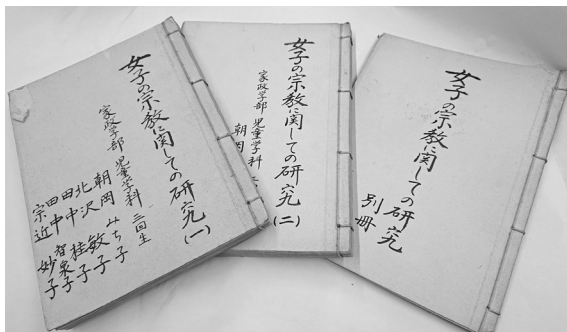 女子の宗教に関しての研究(一)
家政学部 児童学科 三回生
朝岡みち子
北沢敏子
田中桂子
田中智泉子
宗近妙子
女子の宗教に関しての研究(二)
家政学部 児童学科
朝岡
女子の宗教に関しての研究
別冊